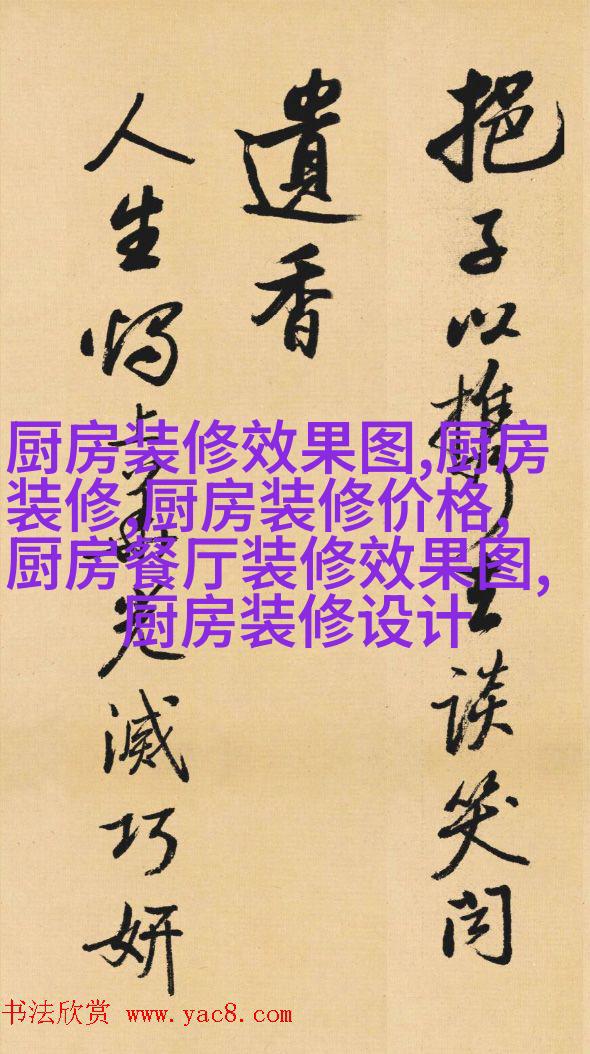 挹子以生談笑
遺香
人生滅巧妍
厨房装修效果图,厨房
装修,厨房装修价格,
厨房餐厅装修效果图,
厨房装修设计
书法欣赏 www.yac8.com